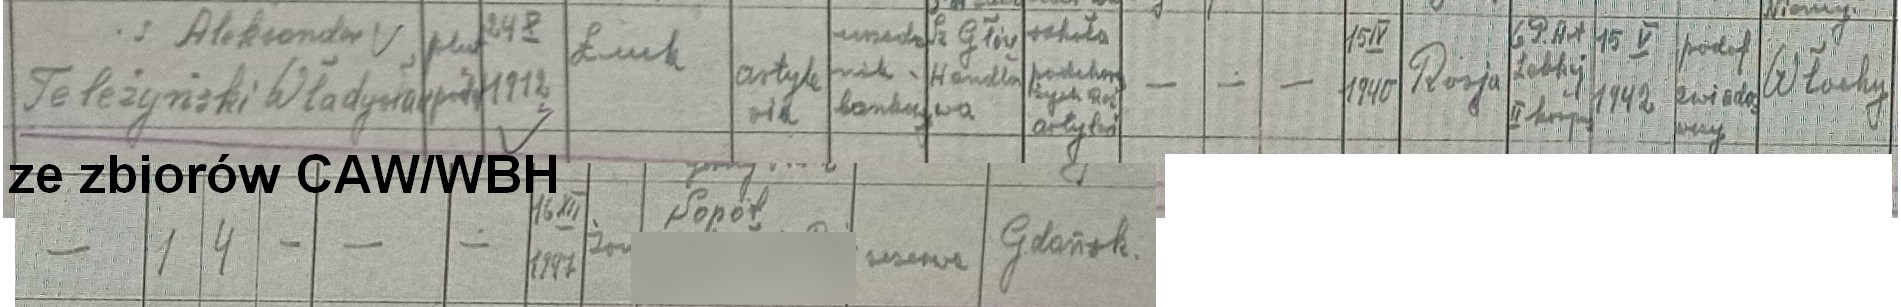 Aleksander V
Teleżyński Władysław
plut
24 X
1912
Łuck
artyle
rik
urzęd
nik
banku
Sz Głów
Handlo
wa
szkoła
podchor
artyleri
— ÷ —
15 IV
1940
Rosja
6 P.Art
Lekkiej
II korpus
15 V
1942
podof
zwiado
wczy
Włochy
ze zbiorów CAW/WBH
— 1 4 - — ÷
16 XII
1947
Żon
Sopot
rezerwa
Gdańsk.